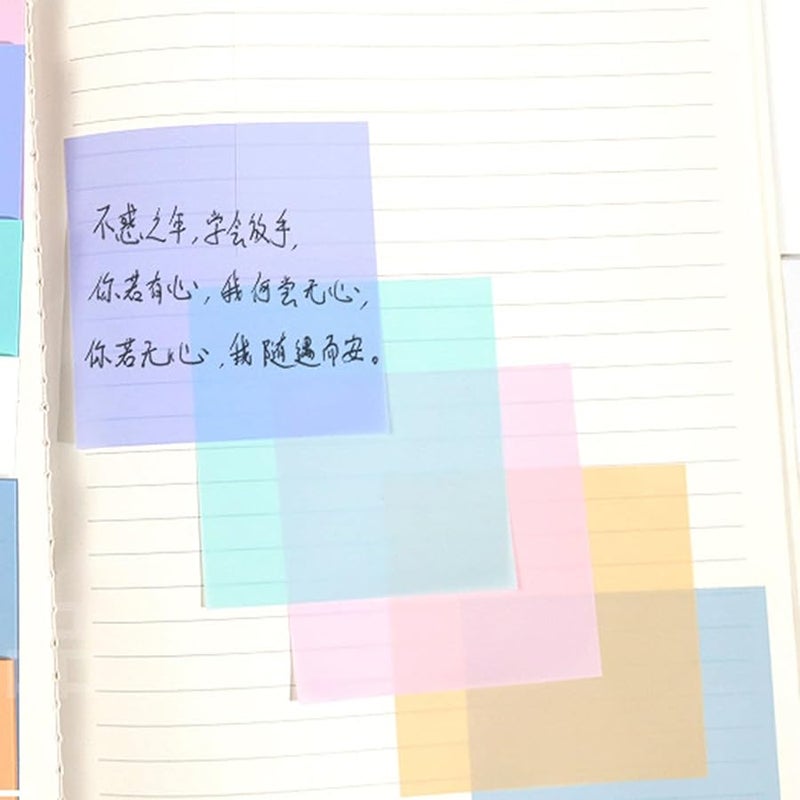 不惑之年，学会放手，
你若有心，我何尝无心，
你若无心，我随遇而安。